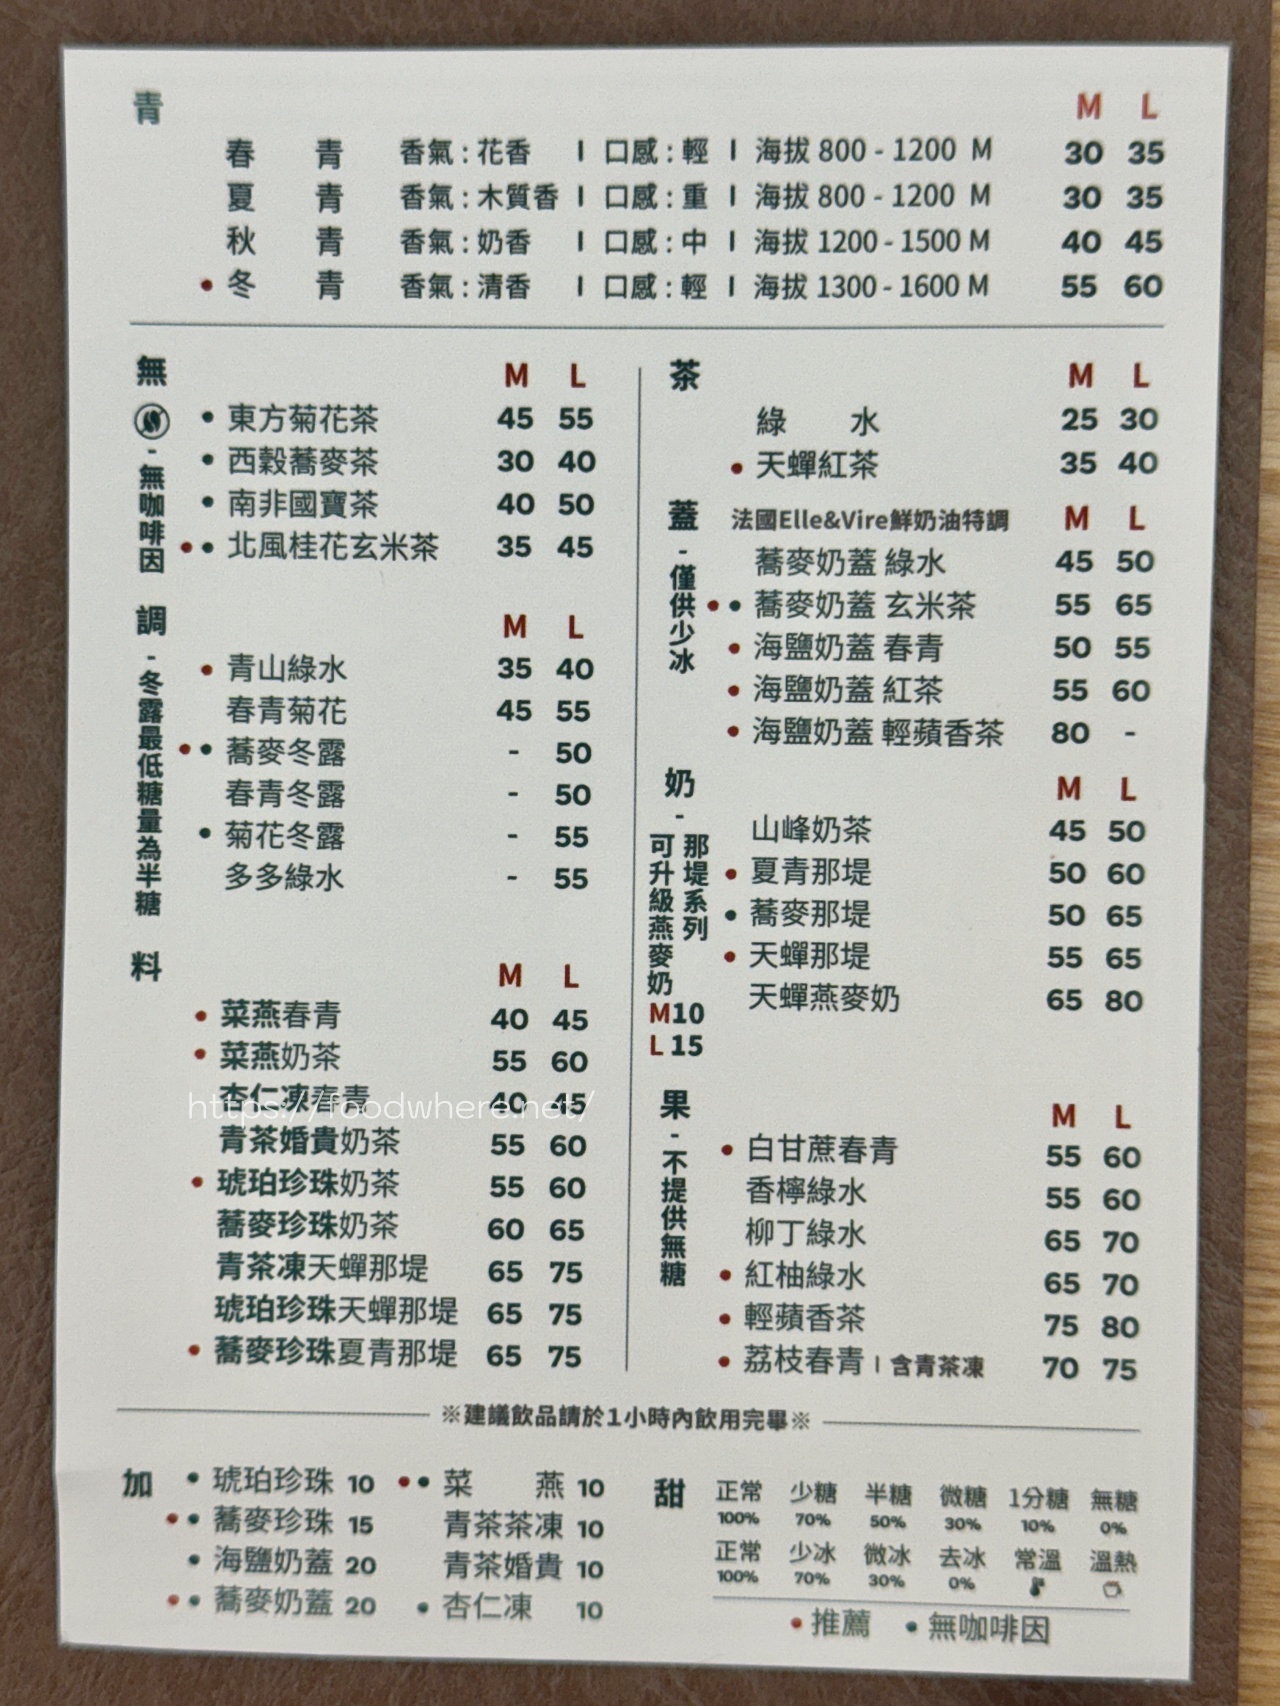 青 M L
春 青 香氣:花香 | 口感:輕 | 海拔 800 - 1200 M 30 35
夏 青 香氣:木質香 | 口感:重 | 海拔 800 - 1200 M 30 35
秋 青 香氣:奶香 | 口感:中 | 海拔 1200 - 1500 M 40 45
• 冬 青 香氣:清香 | 口感:輕 | 海拔 1300 - 1600 M 55 60
無 - 無咖啡因 M L
• 東方菊花茶 45 55
• 西穀蕎麥茶 30 40
• 南非國寶茶 40 50
•• 北風桂花玄米茶 35 45
調 - 冬露最低糖量為半糖 M L
• 青山綠水 35 40
春青菊花 45 55
•• 蕎麥冬露 - 50
春青冬露 - 50
• 菊花冬露 - 55
多多綠水 - 55
料 M L
• 菜燕春青 40 45
• 菜燕奶茶 55 60
杏仁凍春青 40 45
https://foodwhere.net/
青茶婚貴奶茶 55 60
• 琥珀珍珠奶茶 55 60
蕎麥珍珠奶茶 60 65
青茶凍天蟬那堤 65 75
琥珀珍珠天蟬那堤 65 75
• 蕎麥珍珠夏青那堤 65 75
茶 M L
綠 水 25 30
• 天蟬紅茶 35 40
蓋 - 僅供少冰 法國Elle&Vire鮮奶油特調 M L
蕎麥奶蓋 綠水 45 50
•• 蕎麥奶蓋 玄米茶 55 65
• 海鹽奶蓋 春青 50 55
• 海鹽奶蓋 紅茶 55 60
• 海鹽奶蓋 輕蘋香茶 80 -
奶 - 那堤系列 可升級燕麥奶 M10 L15 M L
山峰奶茶 45 50
• 夏青那堤 50 60
• 蕎麥那堤 50 65
• 天蟬那堤 55 65
天蟬燕麥奶 65 80
果 - 不提供無糖 M L
• 白甘蔗春青 55 60
香檸綠水 55 60
柳丁綠水 65 70
• 紅柚綠水 65 70
• 輕蘋香茶 75 80
• 荔枝春青 | 含青茶凍 70 75
※建議飲品請於1小時內飲用完畢※
加
• 琥珀珍珠 10
•• 蕎麥珍珠 15
• 海鹽奶蓋 20
•• 蕎麥奶蓋 20
•• 菜 燕 10
青茶茶凍 10
青茶婚貴 10
• 杏仁凍 10
甜 正常 少糖 半糖 微糖 1分糖 無糖
100% 70% 50% 30% 10% 0%
正常 少冰 微冰 去冰 常溫 溫熱
100% 70% 30% 0%
• 推薦 • 無咖啡因